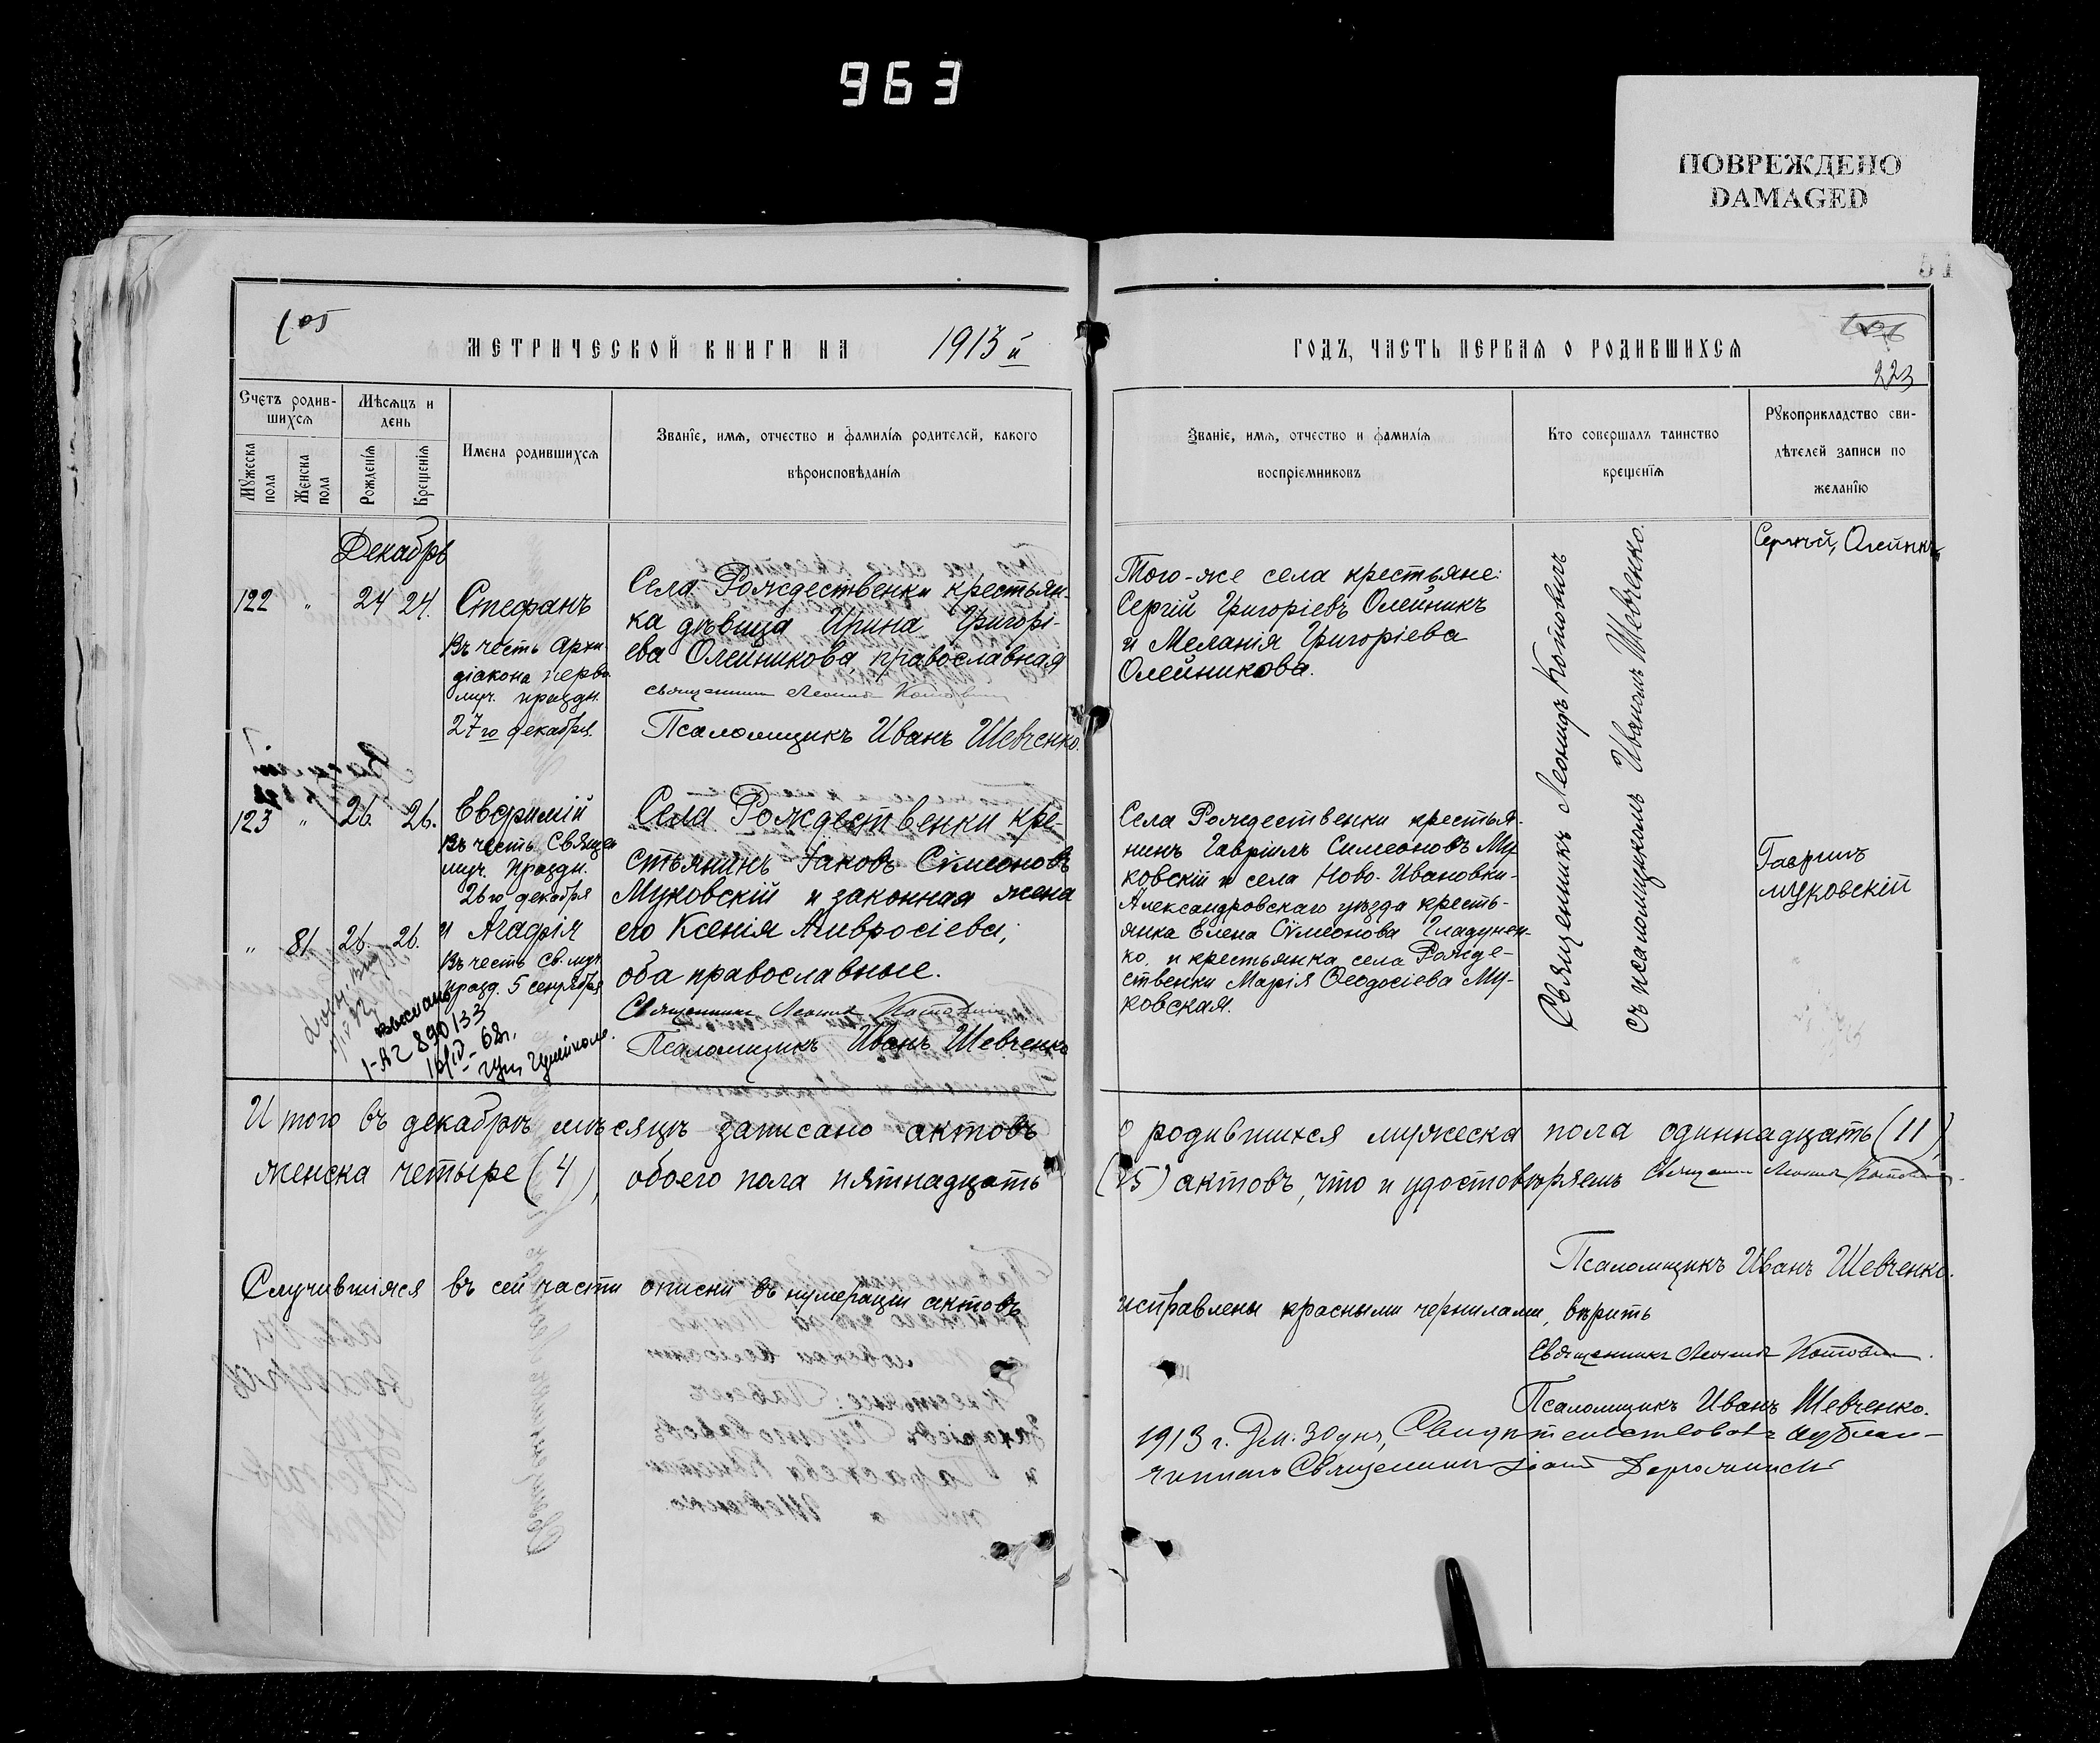 963
ПОВРЕЖДЕНО
DAMAGED
51
105
МЕТРИЧЕСКОЙ КНИГИ НА 1913 й
ГОДЪ, ЧАСТЬ ПЕРВАЯ О РОДИВШИХСЯ
223
Счетъ родив-
шихся
Мѣсяцъ и
день
Мужеска
пола
Женска
пола
Рожденія
Крещенія
Имена родившихся
Званіе, имя, отчество и фамилія родителей, какого
вѣроисповѣданія
Званіе, имя, отчество и фамилія
воспріемниковъ
Кто совершалъ таинство
крещенія
Рукоприкладство сви-
дѣтелей записи по
желанію
Декабрь
122 " 24 24. Стефанъ
Въ честь Архи
діакона перво
муч. праздн.
27го декабря.
Села Рождественки крестьян-
ка дѣвица Ирина Григорі-
ева Олейникова, православная
Священникъ Леонидъ Котовичъ
Псаломщикъ Иванъ Шевченко.
Того-же села крестьяне:
Сергій Григоріевъ Олейникъ
и Меланія Григоріева
Олейникова.
Священникъ Леонидъ Котовичъ
съ псаломщикомъ Иваномъ Шевченко.
Сергѣй, Олейникъ
123 " 26. 26. Евфимій
Въ честь Священ
муч. праздн.
26го декабря
" 81 26. 26. и Агафія
Въ честь Св. муч.
празд. 5 сентября
1-АГ 890133
Села Рождественки кре-
стьянинъ Іаковъ Сѵмеоновъ
Муковскій и законная жена
его Ксенія Амвросіева,
оба православные.
Священникъ Леонидъ Котовичъ
Псаломщикъ Иванъ Шевченко
Села Рождественки крестья-
нинъ Гавріилъ Симеоновъ Му-
ковскій и села Ново-Ивановки-
Александровскаго уѣзда кресть-
янка Елена Сѵмеонова Гладунен-
ко, и крестьянка села Рожде-
ственки Марія Ѳеодосіева Му-
ковская.
Гаврилъ
муковскій
Итого въ декабрѣ мѣсяцѣ записано актовъ о родившихся мужеска пола одиннадцать (11),
женска четыре (4), обоего пола пятнадцать (15) актовъ, что и удостовѣряемъ Священникъ Леонидъ Котовичъ.
Псаломщикъ Иванъ Шевченко.
Случившіяся въ сей части описки въ нумераціи актовъ исправлены красными чернилами, вѣрить
Священникъ Леонидъ Котовичъ.
Псаломщикъ Иванъ Шевченко.
1913 г. Дек. 30 дня, Свидѣтельствовалъ
Священникъ